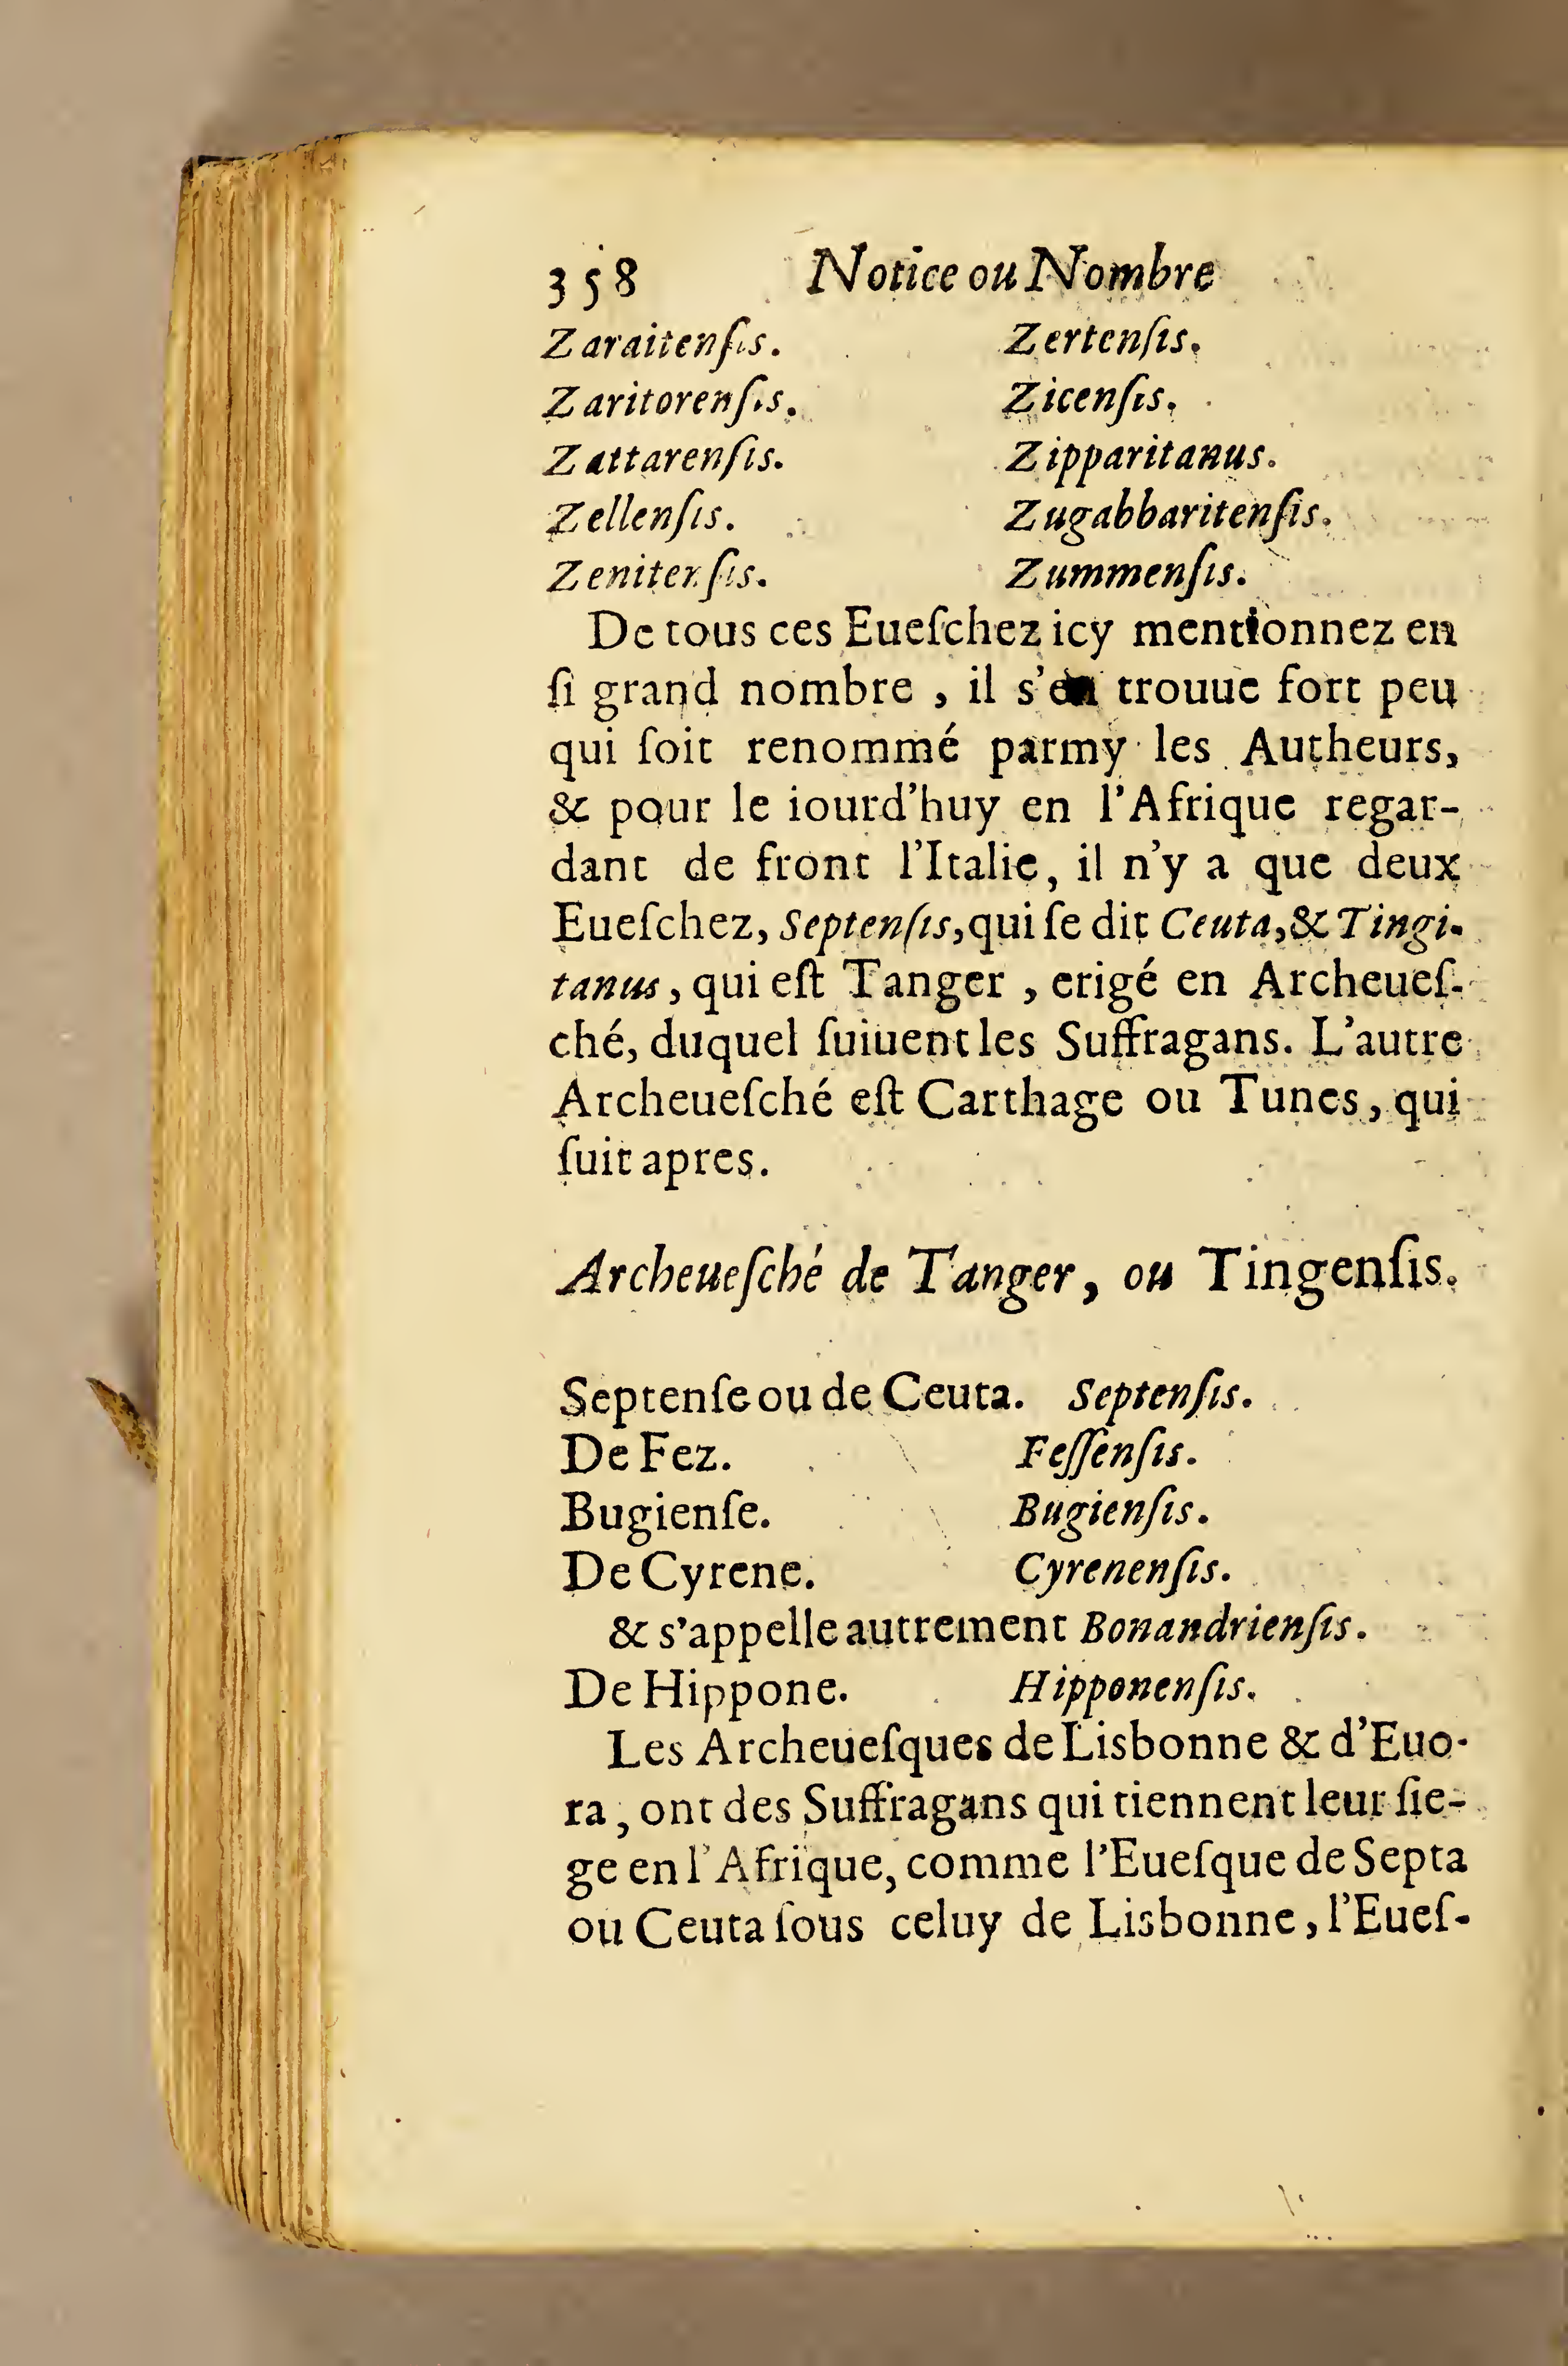 358 Notice ou Nombre
Zaraitenſis. Zertenſis.
Zaritorenſis. Zicenſis.
Zattarenſis. Zipparitanus.
Zellenſis. Zugabbaritenſis.
Zenitenſis. Zummenſis.
De tous ces Eueſchez icy mentionnez en
ſi grand nombre , il s'en trouue fort peu
qui ſoit renommé parmy les Autheurs,
& pour le iourd'huy en l'Afrique regar-
dant de front l'Italie, il n'y a que deux
Eueſchez, Septenſis, qui ſe dit Ceuta, & Tingi-
tanus, qui eſt Tanger , erigé en Archeueſ-
ché, duquel ſuiuent les Suffragans. L'autre
Archeueſché eſt Carthage ou Tunes, qui
ſuit apres.
Archeueſché de Tanger, ou Tingenſis.
Septenſe ou de Ceuta. Septenſis.
De Fez. Feſſenſis.
Bugienſe. Bugienſis.
De Cyrene. Cyrenenſis.
& s'appelle autrement Bonandrienſis.
De Hippone. Hipponenſis.
Les Archeueſques de Lisbonne & d'Euo-
ra, ont des Suffragans qui tiennent leur ſie-
ge en l'Afrique, comme l'Eueſque de Septa
ou Ceuta ſous celuy de Lisbonne, l'Eueſ-